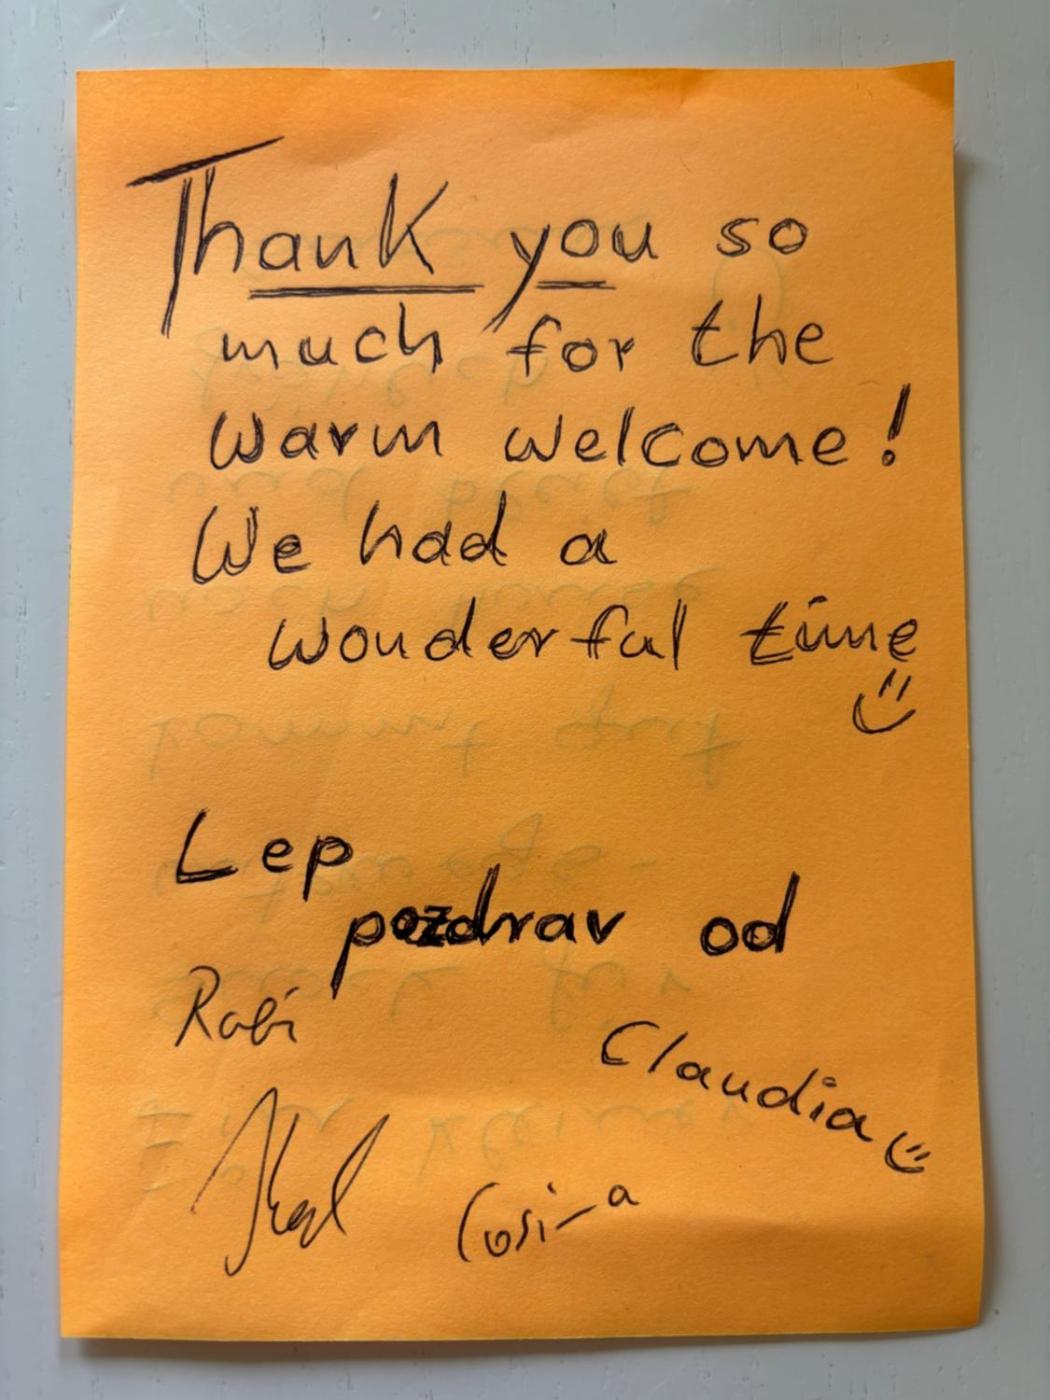 Thank you so
much for the
warm welcome!
We had a
wonderful time
Lep
pozdrav od
Claudia